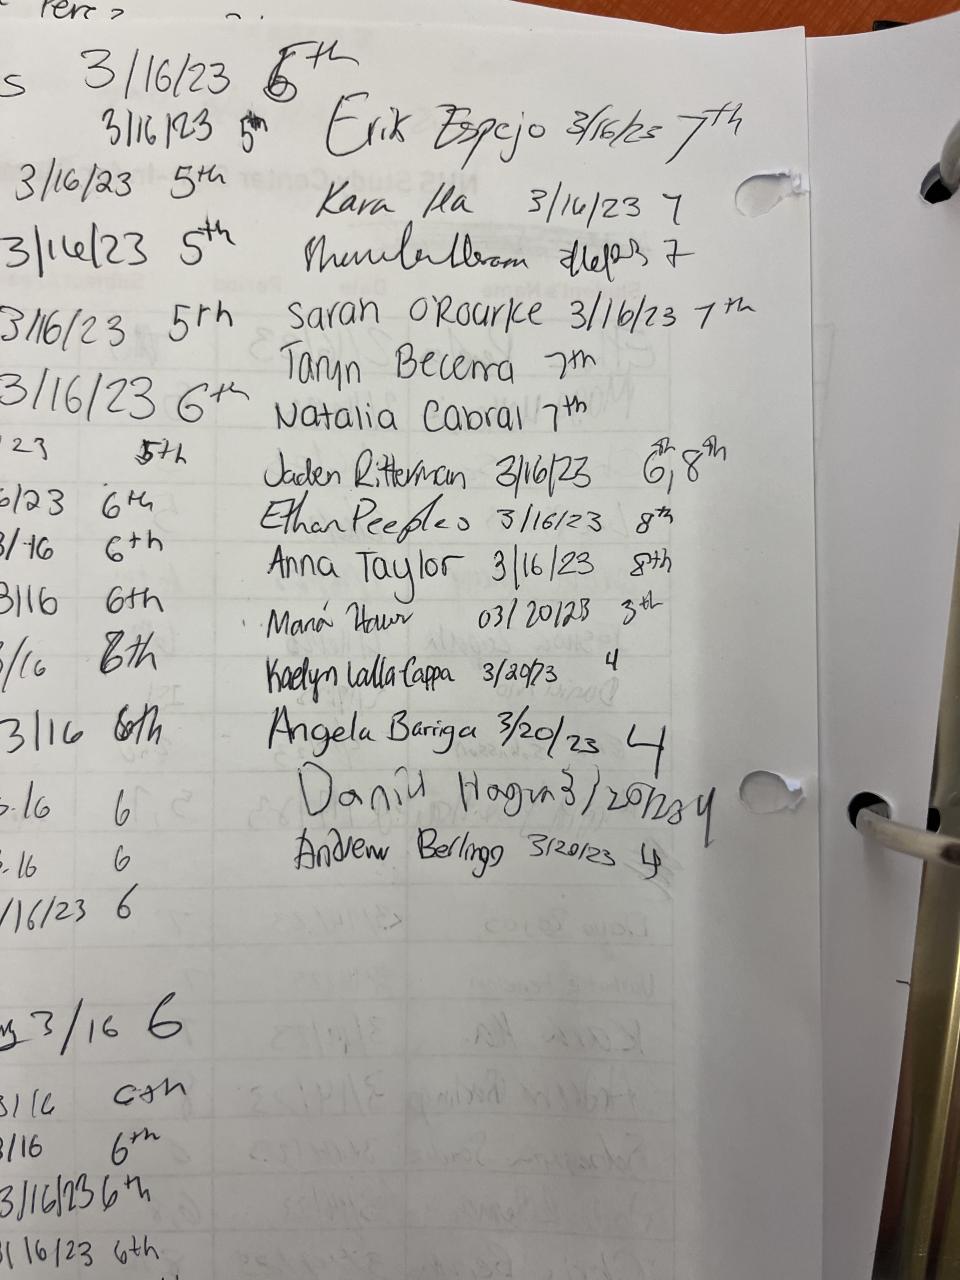 3/16/23 6th
3/16/23 5th
3/16/23 5th
3/16/23 5th
3/16/23 5th
3/16/23 6th
23 5th
6/23 6th
3/16 6th
3/16 6th
/16 6th
3/16 6th
16 6
16 6
/16/23 6
3/16 6
3/16 6th
3/16 6th
3/16/23 6th
3/16/23 6th
Erik Espejo 3/16/23 7th
Kara Ha 3/16/23 7
3/16/23 7
Sarah O'Rourke 3/16/23 7th
Taryn Becerra 7th
Natalia Cabral 7th
Jaden Ritterman 3/16/23 6th, 8th
Ethan Peeples 3/16/23 8th
Anna Taylor 3/16/23 8th
03/20/23 3th
Kaelyn LallaCappa 3/20/23 4
Angela Bariga 3/20/23 4
Daniel 3/20/23 4
Andrew Berlingo 3/20/23 4